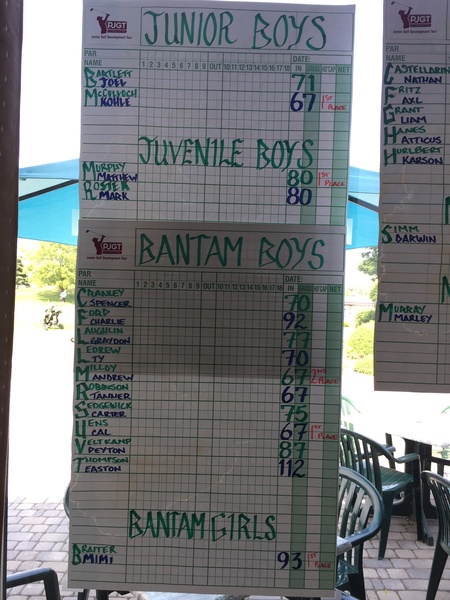 PJGT
Junior Golf Development Tour
JUNIOR BOYS
PAR
DATE:
NAME 1 2 3 4 5 6 7 8 9 OUT 10 11 12 13 14 15 16 17 18 IN GROSS HD CAP NET
BARTLETT JOEL 71
MCCULLOCH KOHLE 67 1ST PLACE
JUVENILE BOYS
MURPHY MATTHEW 80 1ST PLACE
ROSTEK MARK 80
PJGT
Junior Golf Development Tour
BANTAM BOYS
PAR
DATE:
NAME 1 2 3 4 5 6 7 8 9 OUT 10 11 12 13 14 15 16 17 18 IN GROSS HD CAP NET
CRANLEY SPENCER 70
FORD CHARLIE 92
LAUGHLIN GRAYDON 77
LEDREW TY 70
MILLOY ANDREW 67 2ND PLACE
ROBINSON TANNER 67
SEDGEWICK CARTER 75
UENS CAL 67 1ST PLACE
VELTKAMP PEYTON 87
THOMPSON EASTON 112
BANTAM GIRLS
BRAITER MIMI 93 1ST PLACE
PJGT
Junior Golf Development Tour
PAR
NAME
CASTELLARIN NATHAN
FRITZ AXL
GRANT LIAM
HANES ATTICUS
HURLBERT KARSON
SIMM DARWIN
MURRAY MARLEY